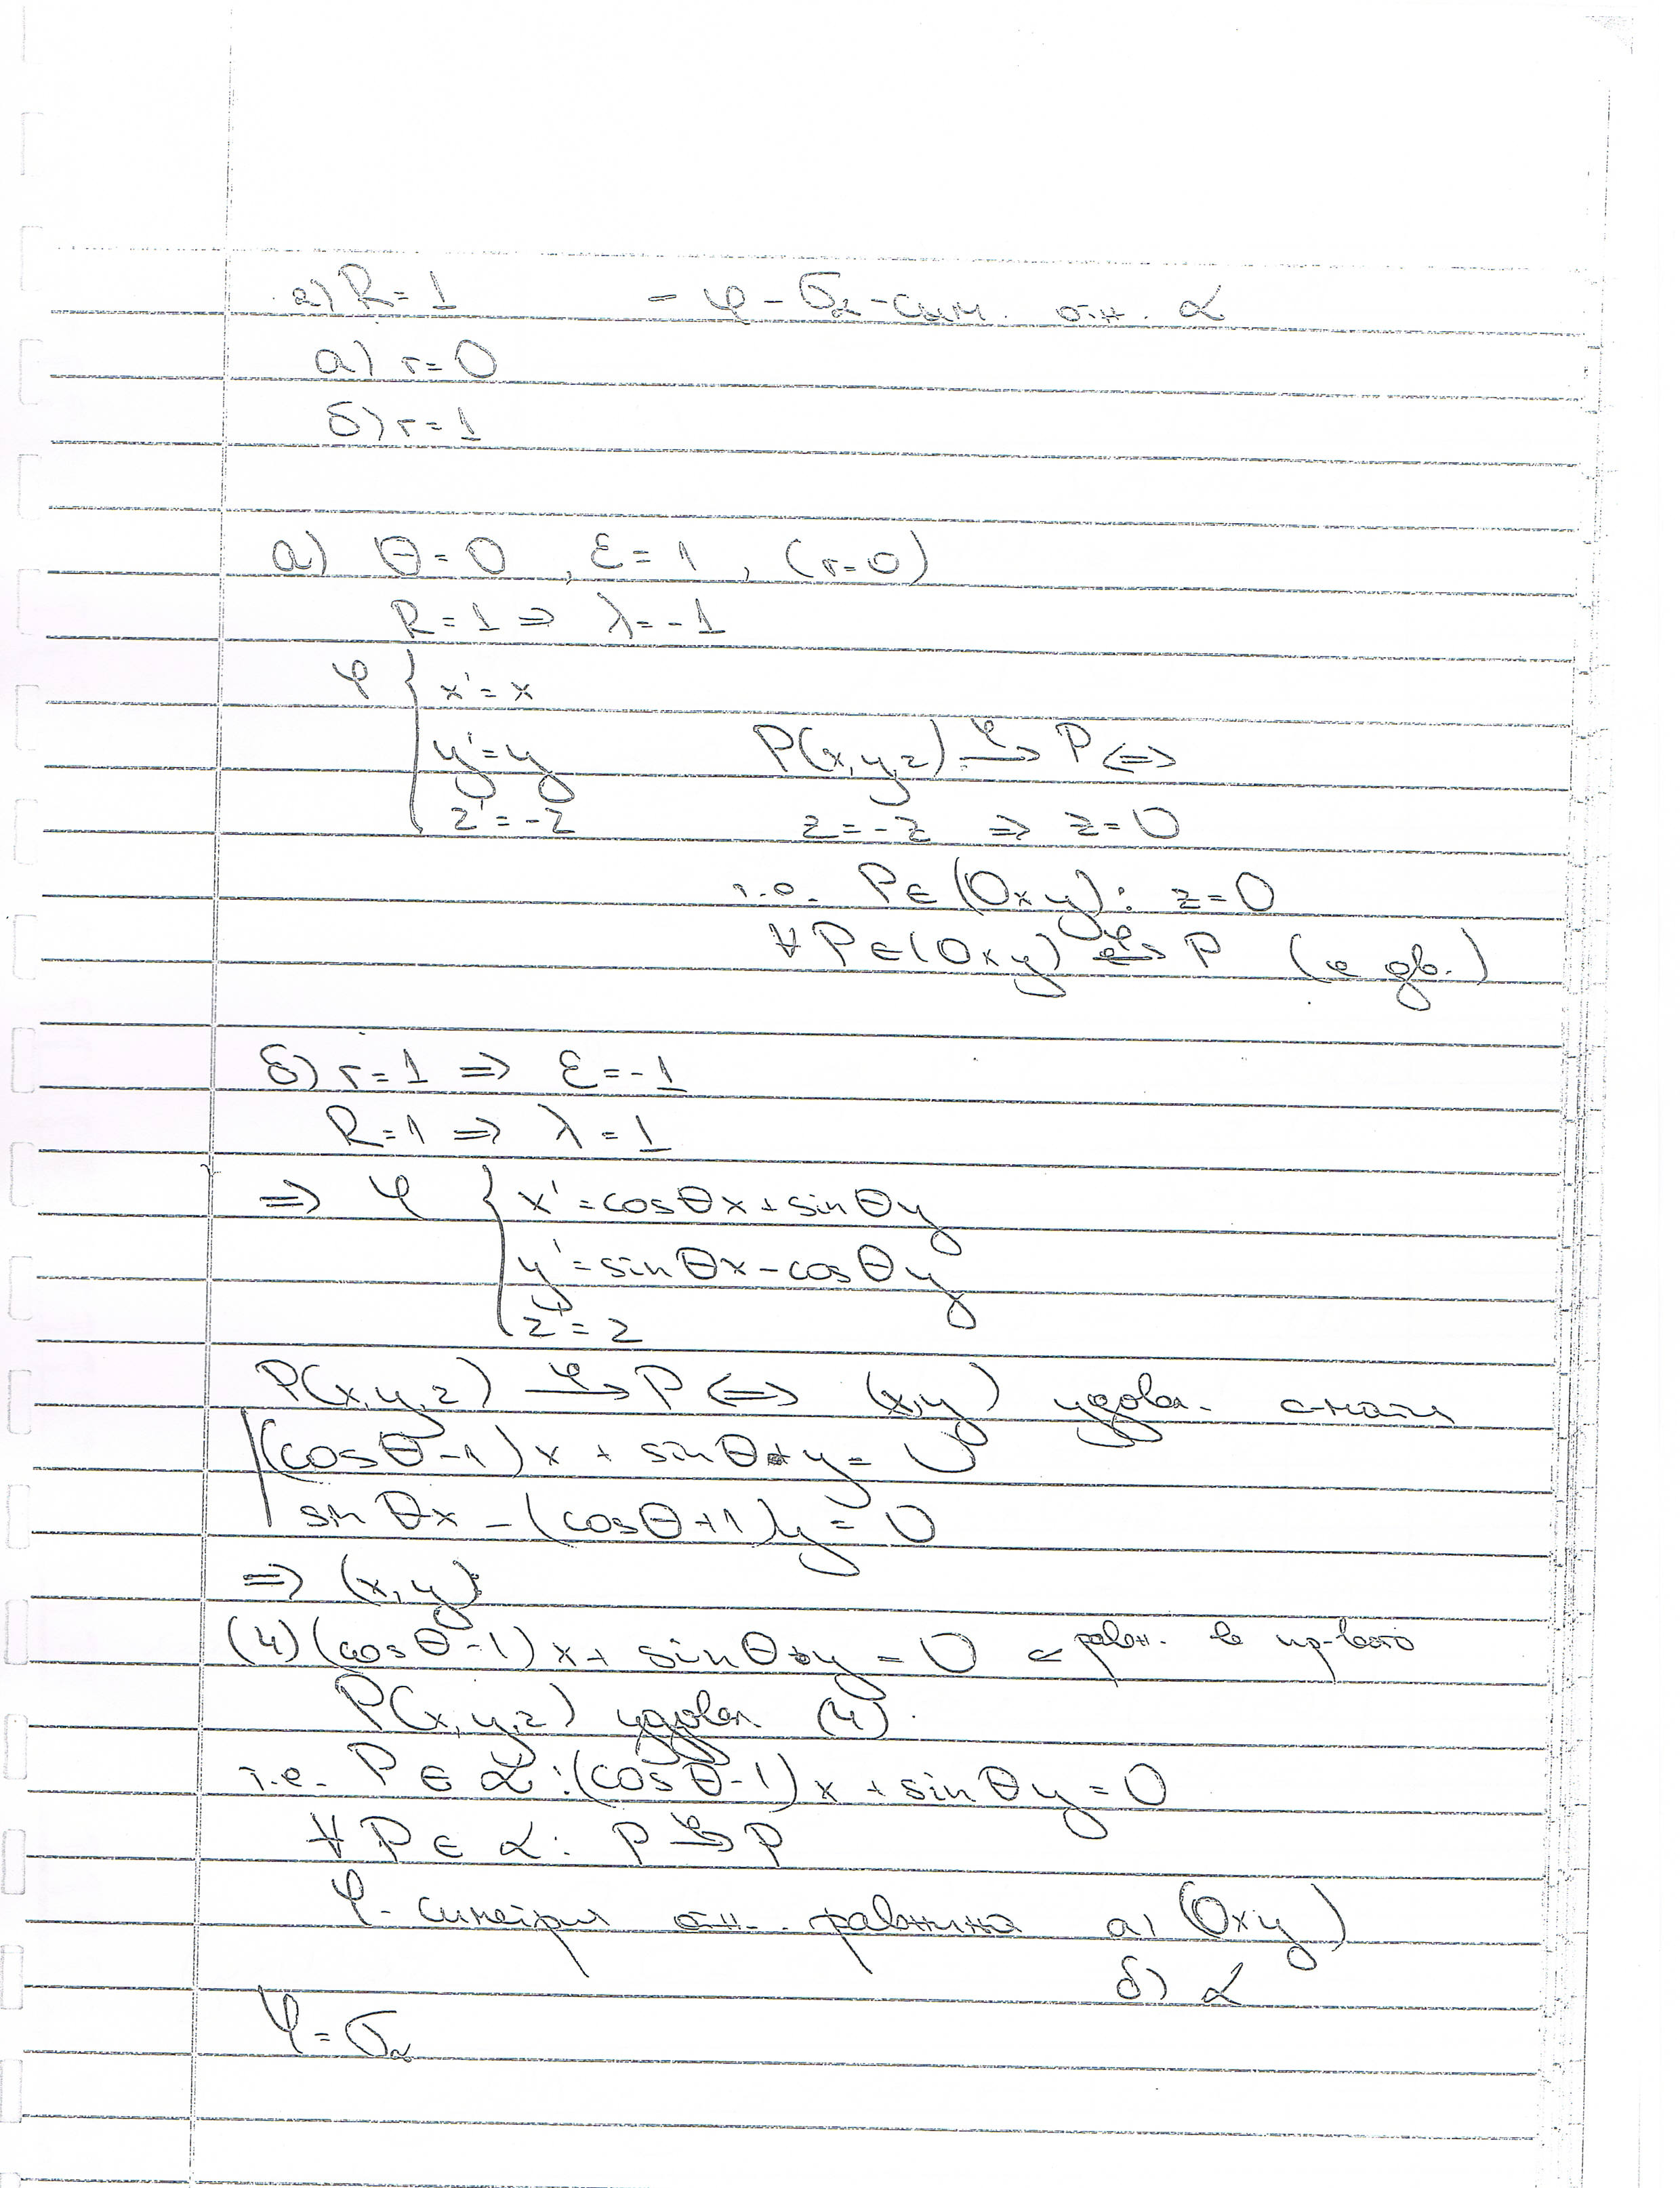 2) R=1 – φ – σα – сим. отн. α
а) r=0
б) r=1
а) θ=0, ε=1, (r=0)
R=1 ⇒ λ=-1
φ { x'=x
y'=y P(x,y,z) →φ P ⇔
z'=-z z=-z ⇒ z=0
т.е. P∈(Oxy): z=0
∀P∈(Oxy) →φ P (е дв.)
б) r=1 ⇒ ε=-1
R=1 ⇒ λ=1
⇒ φ { x'=cosθx+sinθy
y'=sinθx-cosθy
z'=z
P(x,y,z) →φ P ⇔ (x,y) удовл. с-мата
(cosθ-1)x + sinθ.y = 0
sinθx - (cosθ+1)y = 0
⇒ (x,y):
(4) (cosθ-1)x + sinθ.y = 0 ← равн. в пр-вото
P(x,y,z) удовл. (4).
т.е. P ∈ α: (cosθ-1)x + sinθy = 0
∀P ∈ α: P →φ P
φ - симетрия отн. равнина а) (Oxy)
б) α
φ = σα